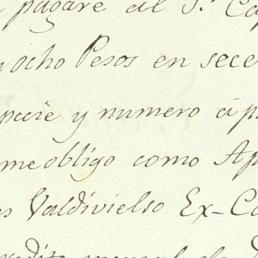 pagare al S.r Ca
ocho Pesos en sece
pecie y numero á p
me obligo como Ap
Valdivielso Ex-Co